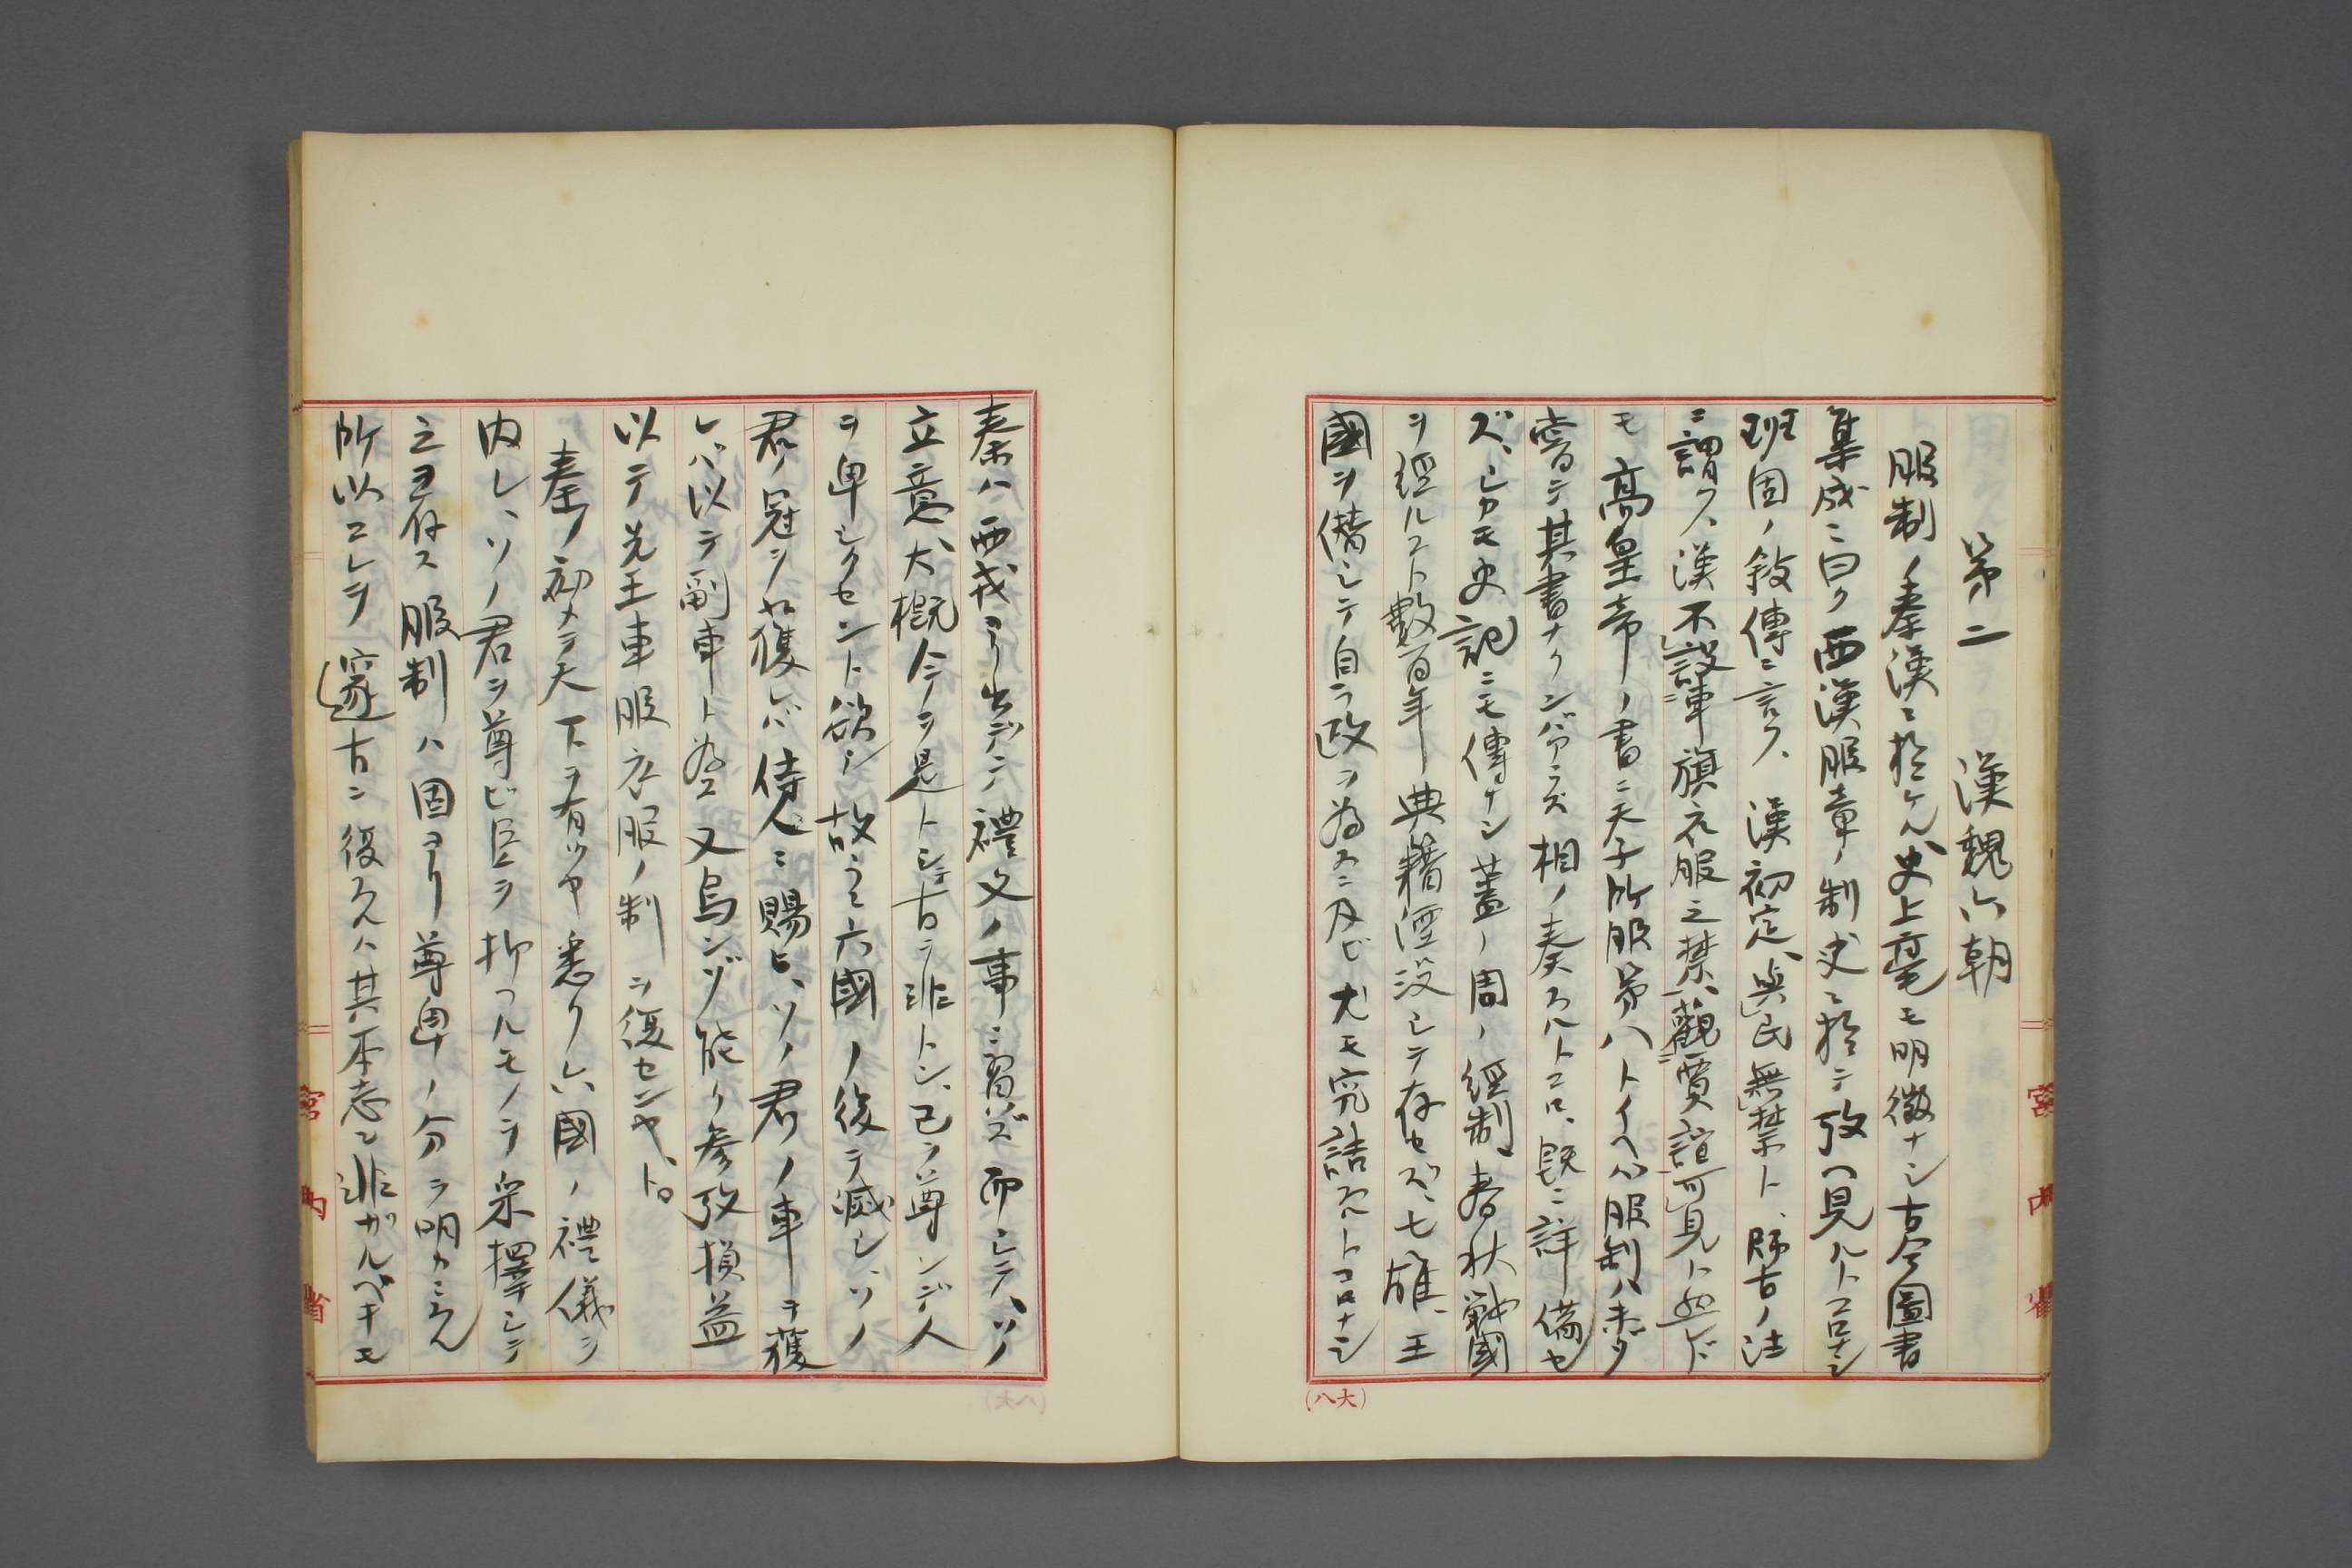 第二 漢魏六朝
服制ノ秦漢ニ於ケル、史上毫モ明徴ナシ古今圖書
集成ニ曰ク西漢服章ノ制史ニ於テ攷ヘ見ルトコロナシ
班固ノ敍傳ニ言フ、漢初定、與民無禁ト、師古ノ注
ニ謂フ、漢不設車旗衣服之禁、觀賈誼可見ト然レド
モ高皇帝ノ書ニ天子所服第八トイヘバ服制ハ未ダ
嘗テ其書ナクンバアラズ相ノ奏スルトコロ、既ニ詳備セ
ズ、シカモ史記ニモ傳ナシ蓋ノ周ノ經制、春秋戰國
ヲ經ルコト數百年典籍湮没シテ存セズ、七雄、王
國ヲ僭シテ自ラ政ヲ為スニ及ビ尤モ究詰スルトコロナシ
秦ハ西戎ヨリ出デテ禮文ノ事ニ習ズ而シテ、ソノ
立意、大概今ヲ是トシテ古ヲ非トシ、己ヲ尊ンデ人
ヲ卑シクセント欲シ故ニ六國ノ後ヲ滅シ、ソノ
君ノ冠ヲ獲レバ侍人ニ賜ヒ、ソノ君ノ車ヲ獲
レバ以テ副車ト為ス又烏ンゾ能ク参攷損益
以テ先王車服衣服ノ制ヲ復センヤ、ト。
秦ノ初メテ天下ヲ有ツヤ悉ク六國ノ禮儀ヲ
内レ、ソノ君ヲ尊ビ臣ヲ抑フルモノヲ采擇シテ
之ヲ存ス服制ハ固ヨリ尊卑ノ分ヲ明カニスル
所以コレヲ邃古ニ復スルハ其本志ニ非ガルベキモ
宮内省
宮内省
(八大)